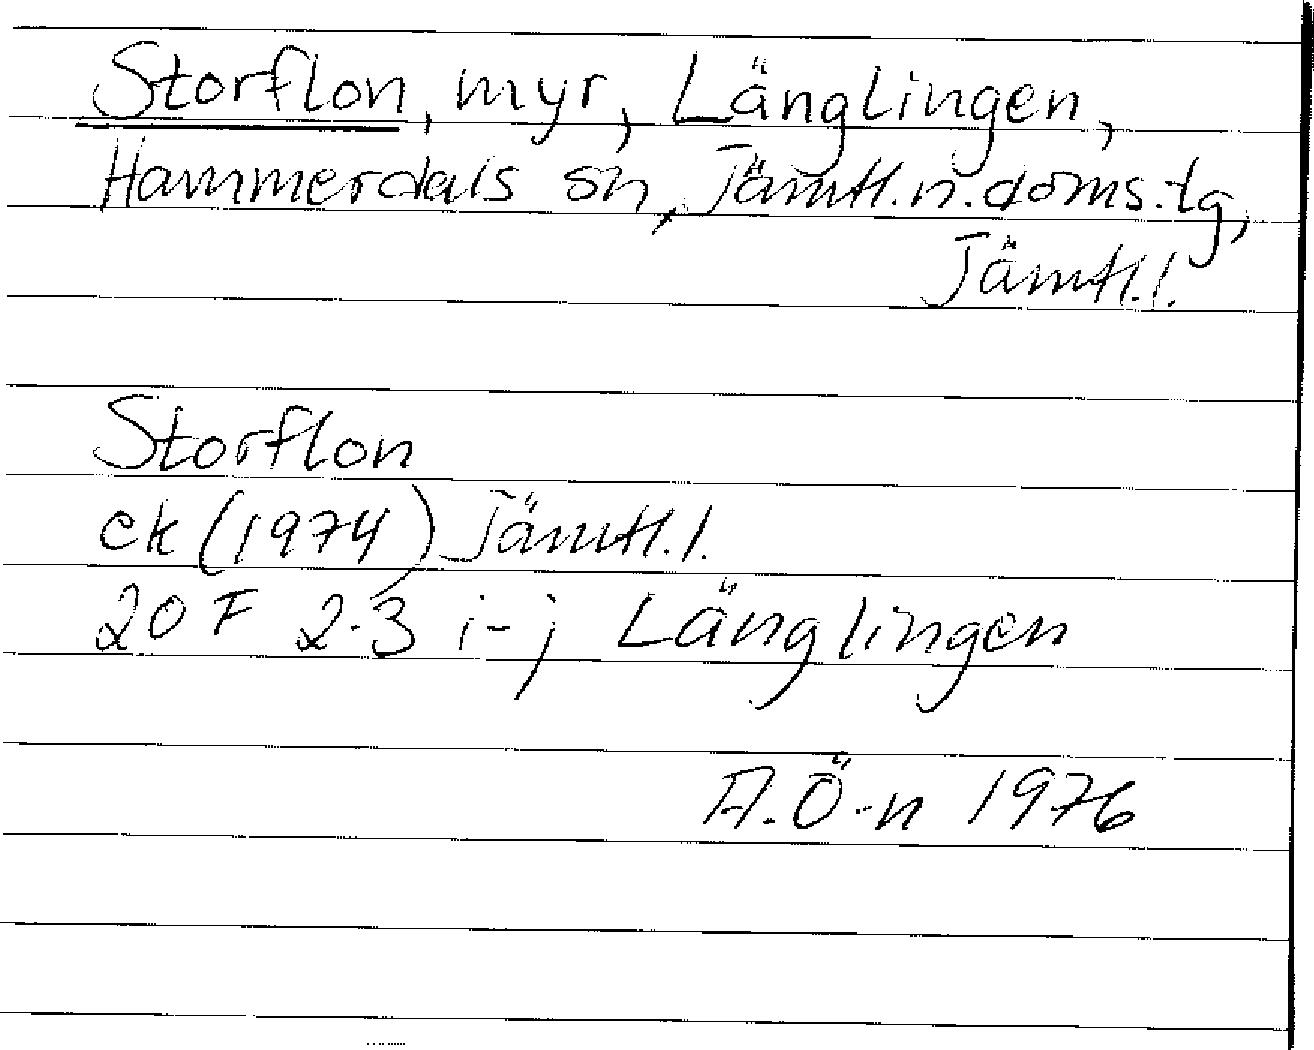 Storflon, myr, Länglingen,
Hammerdals sn, Jämtl.n.doms.tg,
Jämtl.l.
Storflon
ek (1974) Jämtl.l.
20 F 2-3 i-j Länglingen
A.Ö-n 1976